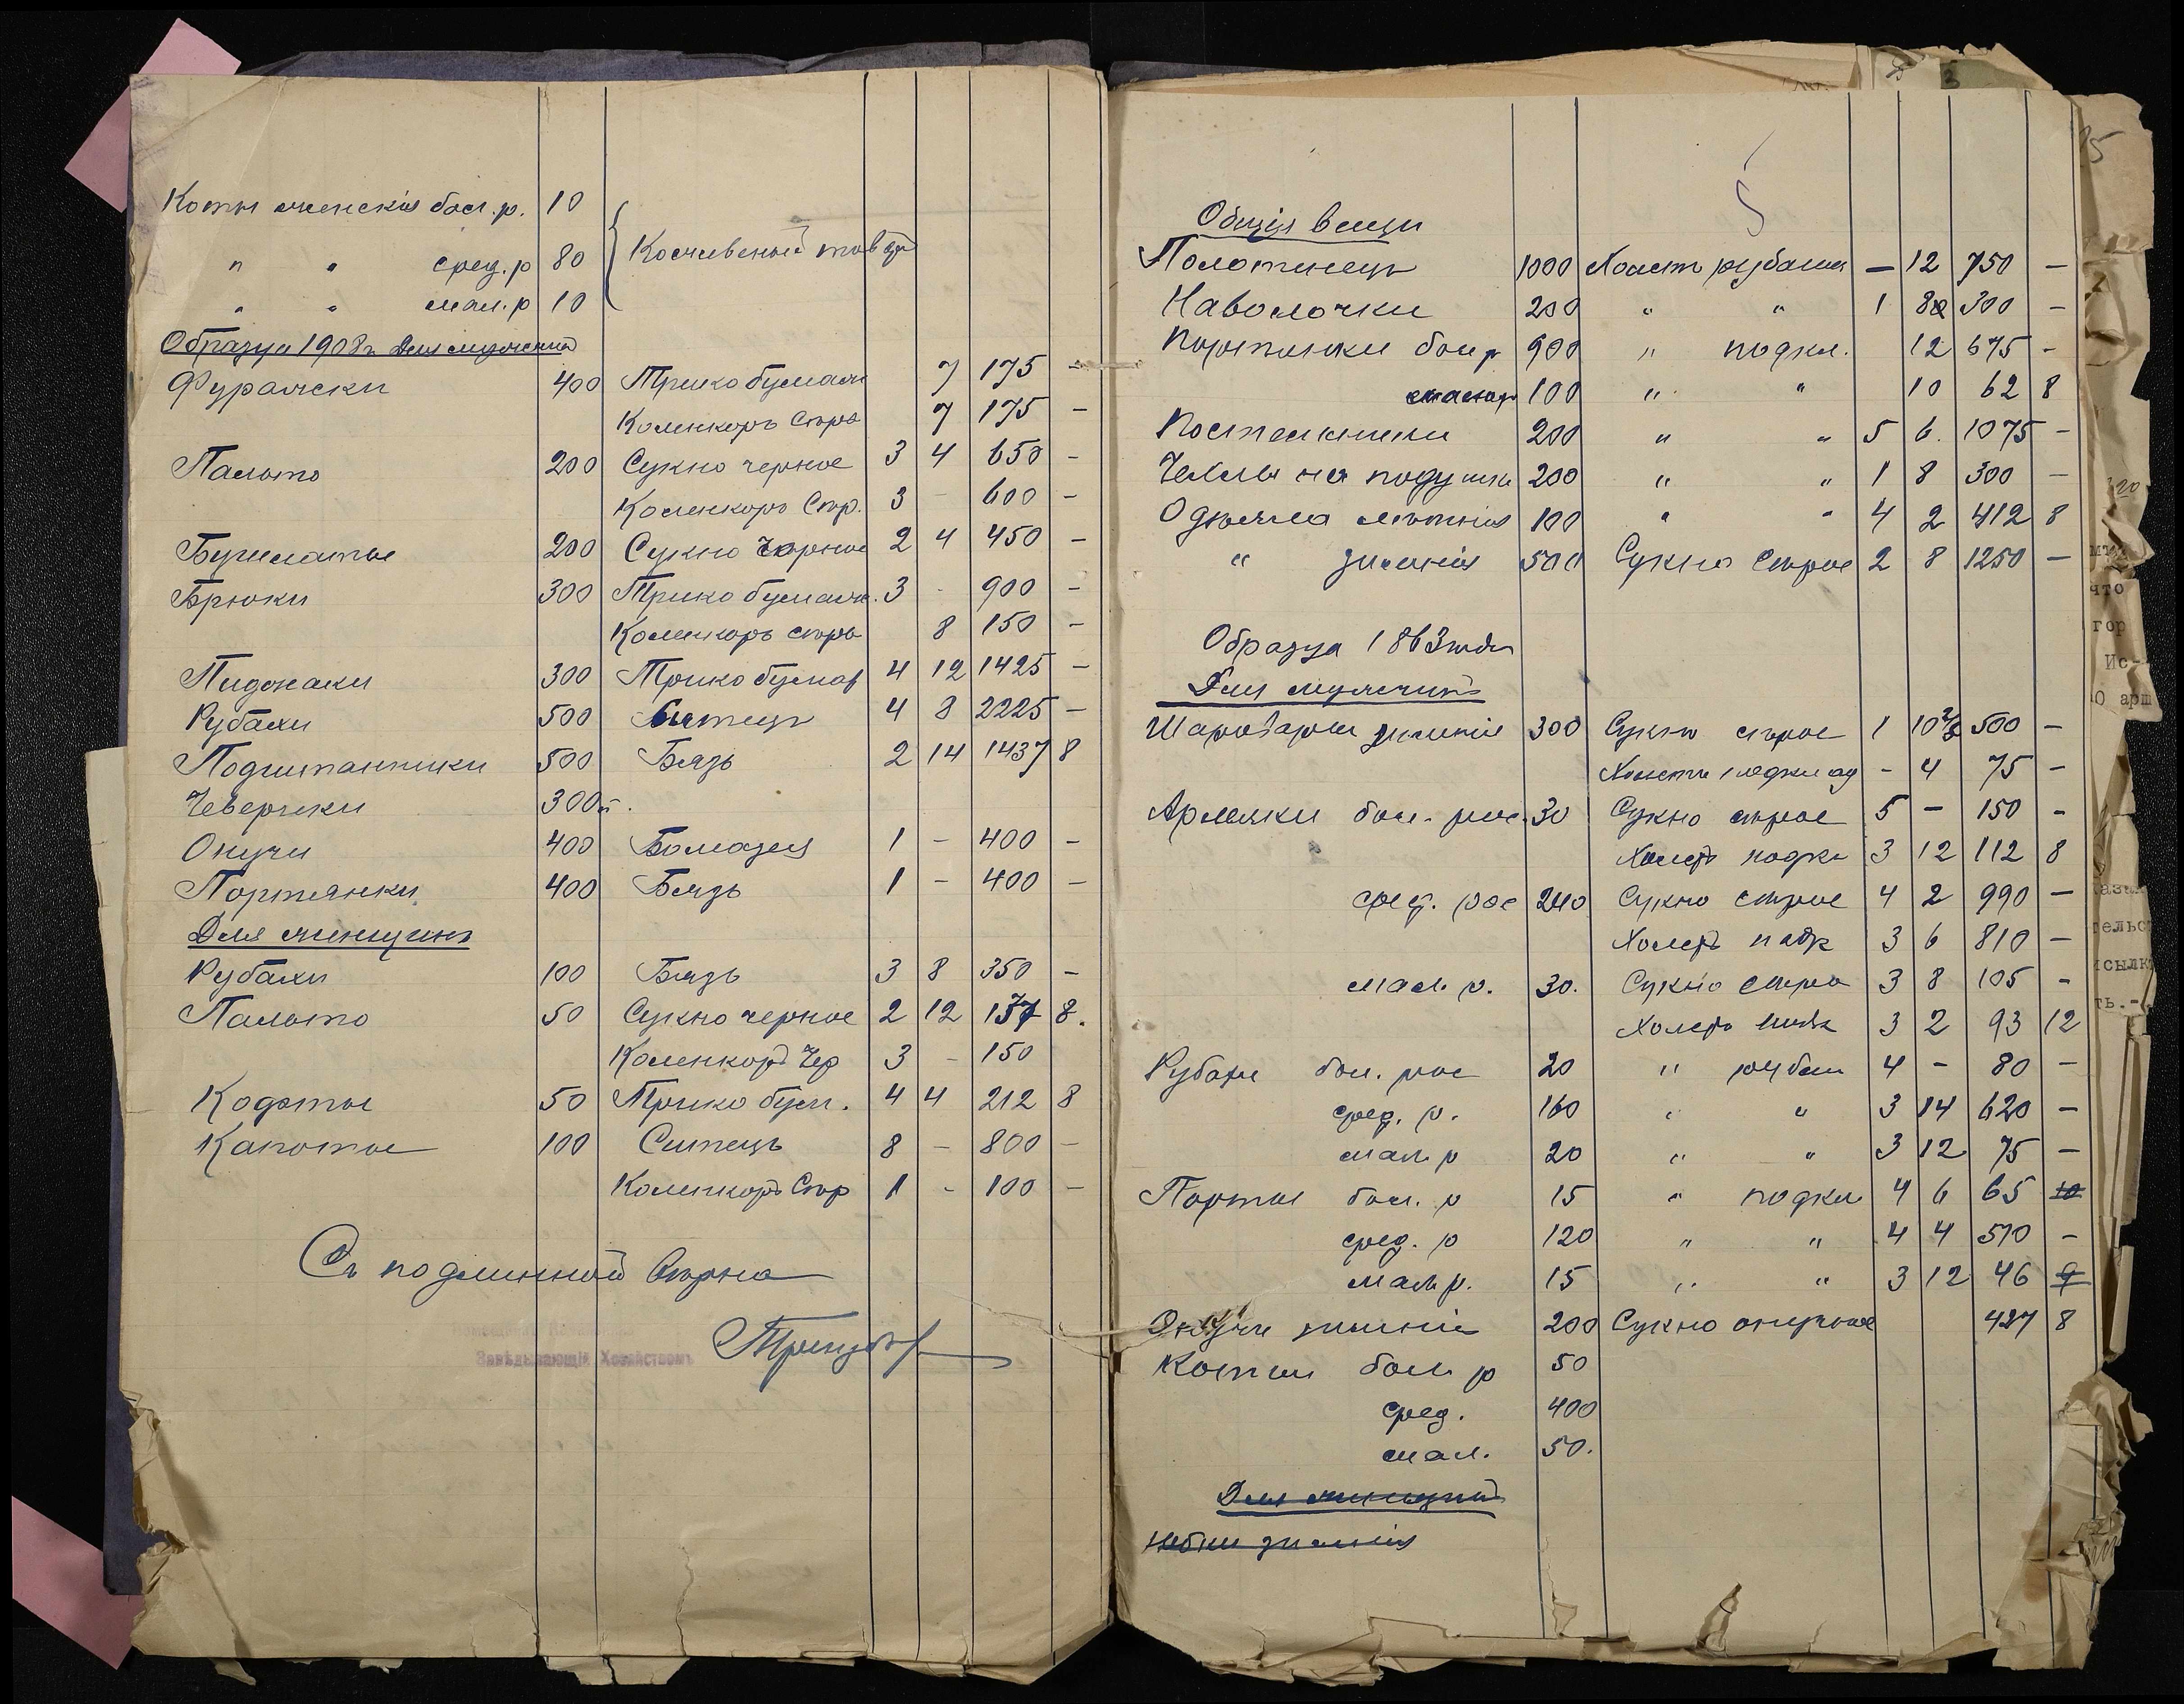 Коты женскія бол. р. 10
" " сред. р 80 Кожевеный товаръ
" " мал. р 10
Образца 1908 г. Для мужчинъ
Фуражски 400 Трико бумажн 7 175 -
Коленкоръ Сѣро 7 175 -
Пальто 200 Сукно черное 3 4 650 -
Коленкоръ Сѣр. 3 - 600 -
Бушлаты 200 Сукно Чорное 2 4 450 -
Брюки 300 Трико бумажн. 3 - 900 -
Коленкоръ сѣро 8 150 -
Пиджаки 300 Трико бумаж 4 12 1425 -
Рубахи 500 Ситецъ 4 8 2225 -
Подштанники 500 Бязь 2 14 1437 8
Чеверики 300 п.
Онучи 400 Бомазея 1 - 400 -
Портянки 400 Бязь 1 - 400 -
Для женщинъ
Рубахи 100 Бязь 3 8 350 -
Пальто 50 Сукно черное 2 12 137 8.
Коленкоръ Чер 3 - 150
Кофты 50 Трико бум. 4 4 212 8
Капоты 100 Ситецъ 8 - 800 -
Коленкоръ Сѣр 1 - 100 -
Съ подлинной вѣрно
Завѣдывающій Хозяйствомъ
15
Общія вещи
Полотенецъ 1000 Холст рубашеч — 12 750 —
Наволочки 200 " " 1 8 300 —
Портянки бол р 900 " подкл. 12 675 -
100 " " 10 62 8
Постельники 200 " " 5 6. 1075 -
Чехлы на подушки 200 " " 1 8 300 —
Одѣяла лѣтнія 100 " " 4 2 412 8
" зимнія 500 Сукно Сѣрое 2 8 1250 —
Образца 1863 года
Для мужчинъ
Шаровары зимніе 300 Сукно сѣрое 1 10 2/3 500 —
Холстъ подклад - 4 75 -
Армяки бол. рос. 30 Сукно сѣрое 5 - 150 -
Холстъ подкл 3 12 112 8
сред. рос 240 Сукно сѣрое 4 2 990 —
Холстъ подк 3 6 810 —
мал. р. 30. Сукно сѣро 3 8 105 -
Холстъ подк 3 2 93 12
Рубахи бол. рос 20 " рубаш 4 - 80 -
сред. р. 160 " " 3 14 620 —
мал. р 20 " " 3 12 75 —
Порты бол. р 15 " подкл 4 6 65 10
сред. р 120 " " 4 4 510 -
мал р. 15 " " 3 12 46 9
Онучи зимніе 200 Сукно онучное 427 8
Коты бол р 50
сред. 400
мал. 50.
Для женщинъ
Юбки зимнія
что
гор
Ис-
0 арш